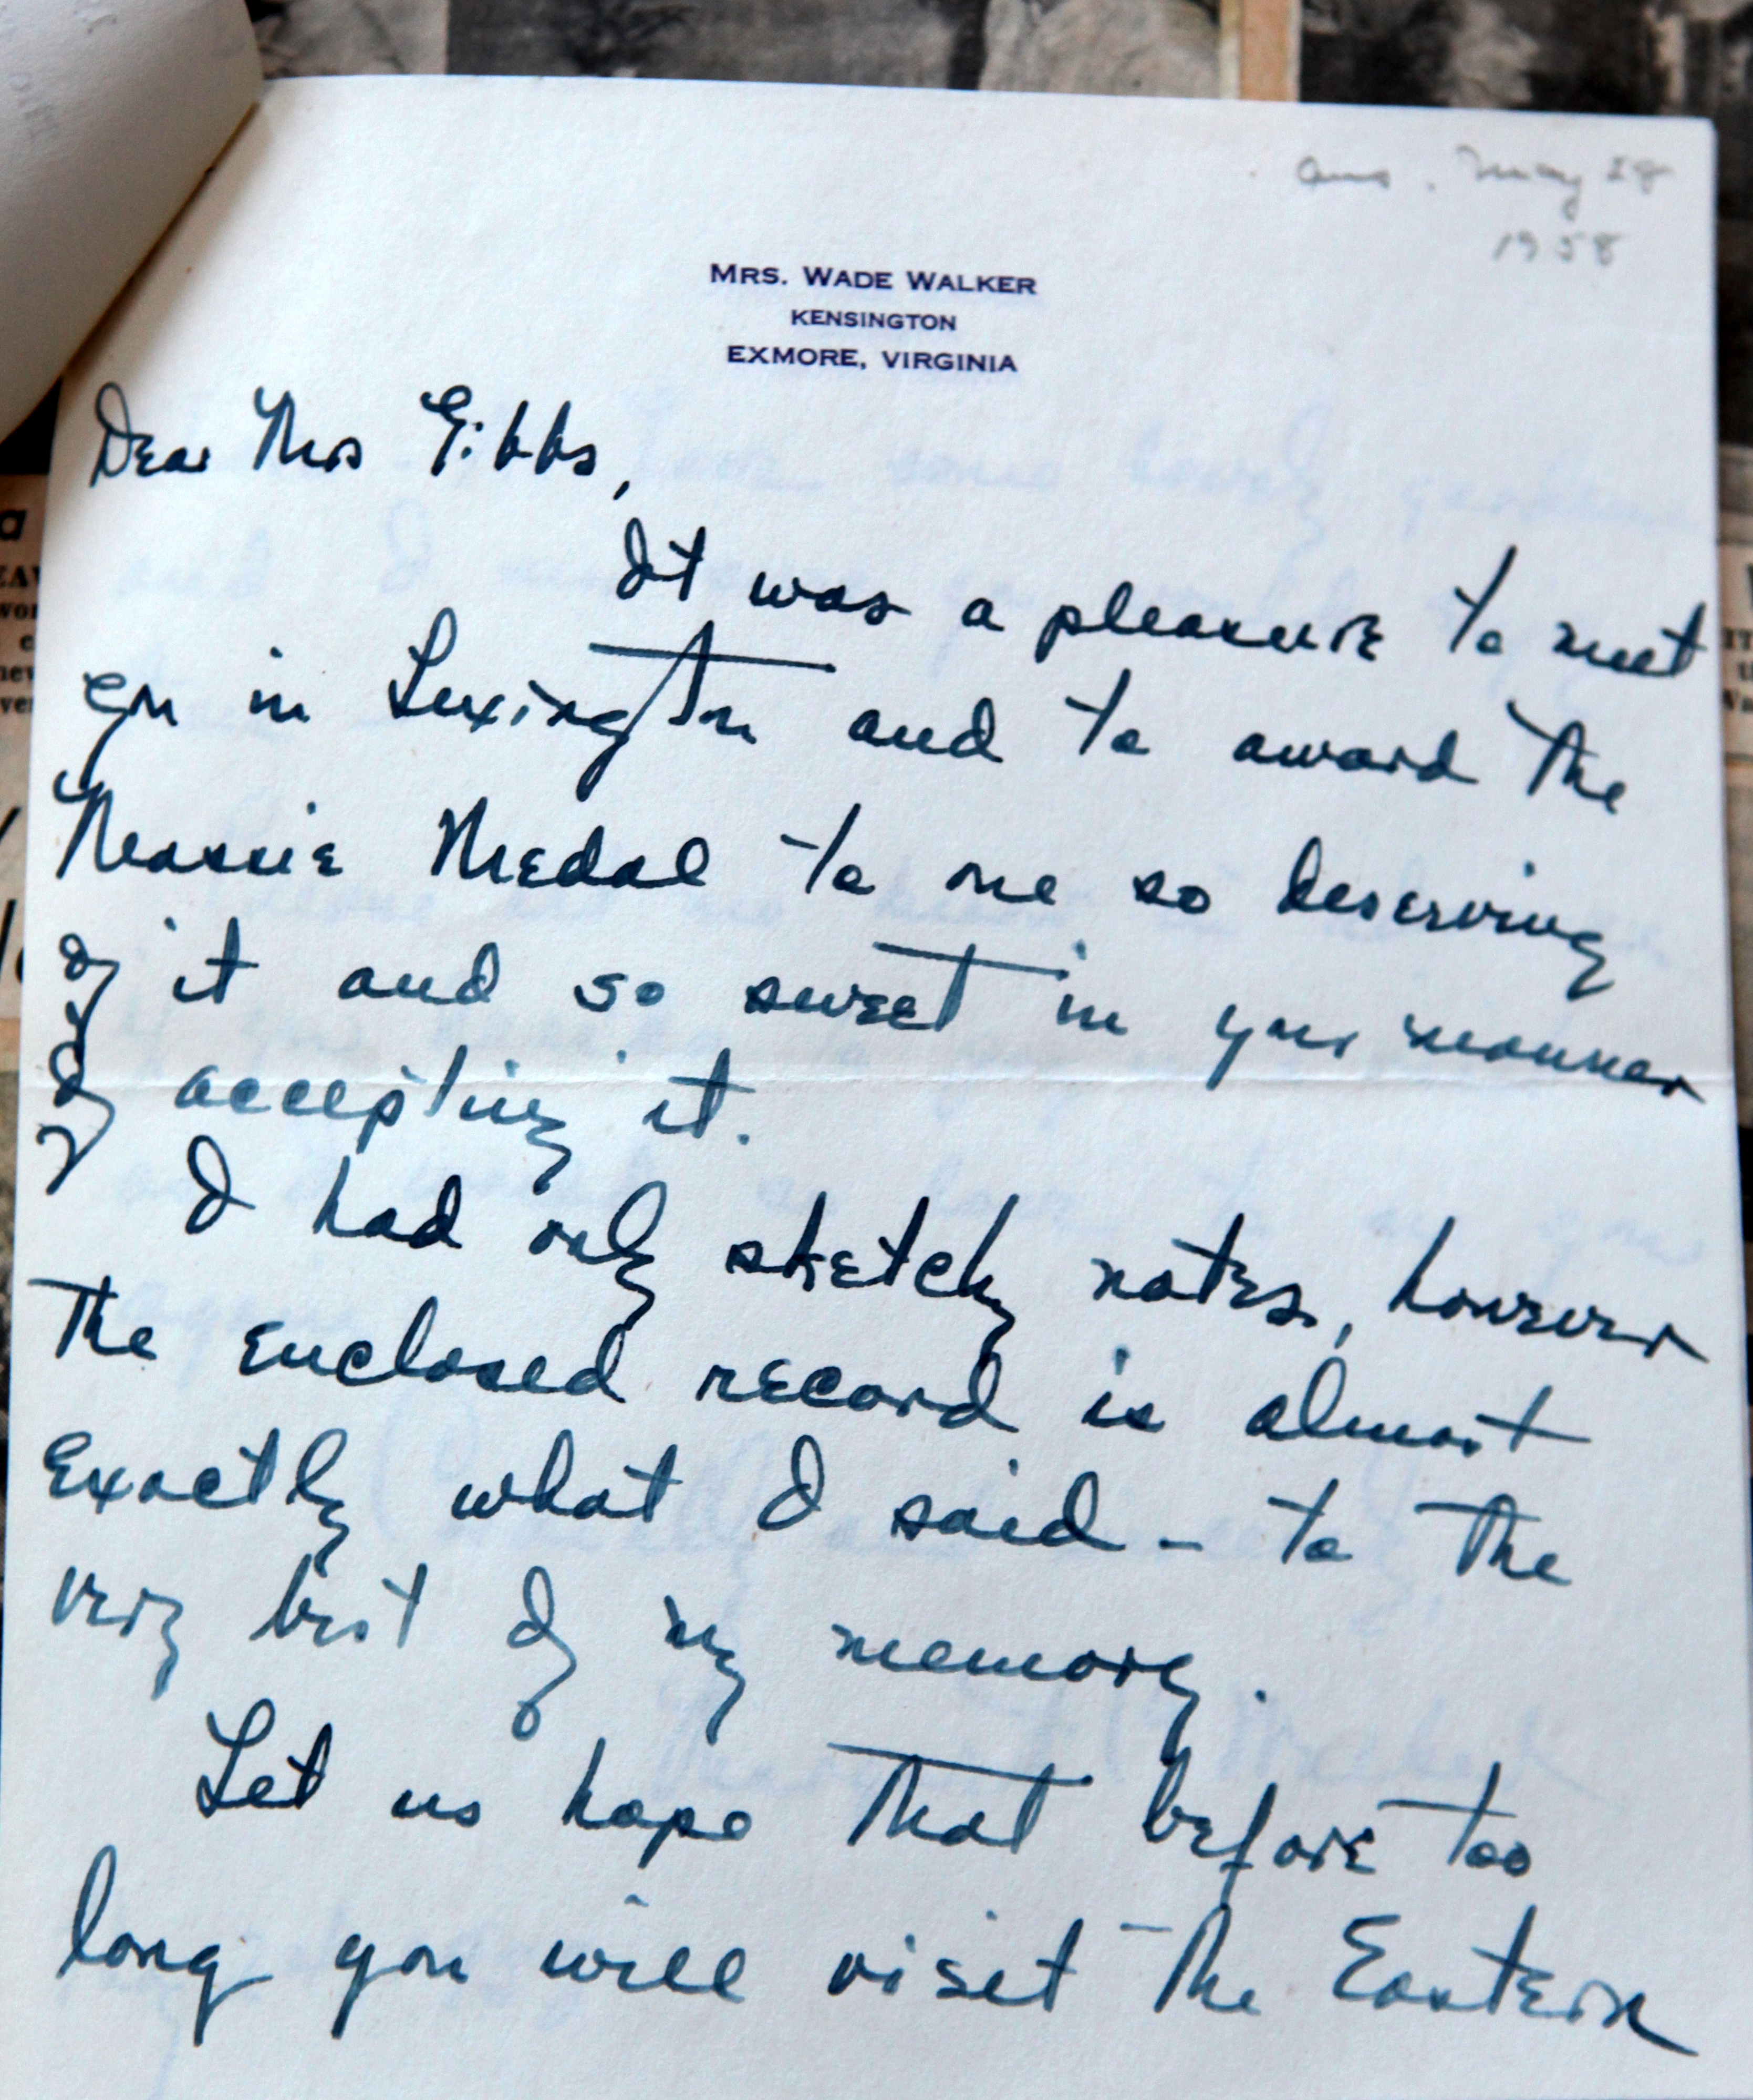 ans. May 28
1958
MRS. WADE WALKER
KENSINGTON
EXMORE, VIRGINIA
Dear Mrs Gibbs,
It was a pleasure to meet
you in Lexington and to award the
Massie Medal to one so deserving
of it and so sweet in your manner
of accepting it.
I had only sketchy notes, however
the enclosed record is almost
exactly what I said - to the
very best of my memory.
Let us hope that before too
long you will visit the Eastern